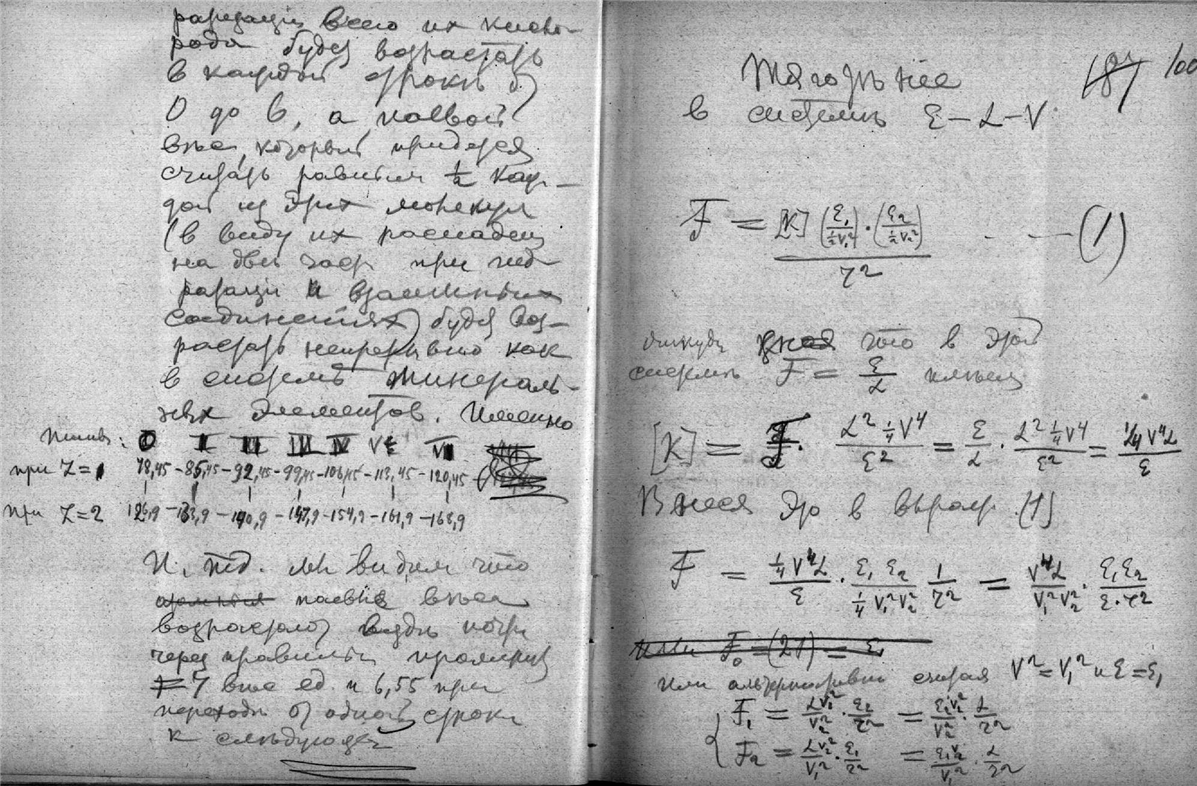 всего их кисло-
рода будет возрастать
в каждой строке от
0 до 6, а паевой
вес, который придется
считать равным 1/2 каж-
дой из этих молекул
(в виду их распадения
на две части при гид-
ратации и взаимных
соединениях) будет воз-
растать непрерывно как
в системе минераль-
ных элементов. Именно
0 I II III IV V VI
при Z=1 78,45 – 85,45 – 92,45 – 99,45 – 106,45 – 113,45 – 120,45
при Z=2 126,9 – 133,9 – 140,9 – 147,9 – 154,9 – 161,9 – 168,9
И. т.д. мы видим что
паевые веса
возрастают везде почти
через правильный промежуток
7 вес. ед. и 6,55 при
переходе от одной строки
к следующей
Тяготение
в системе E – L – V
187 100
F = [K] (E₁/½V₁²)·(E₂/½V₂²) / r² - - — (1)
Откуда что в этой
системе F = E/L имеем
[K] = F· L² ¼V⁴/E² = E/L · L² ¼V⁴/E² = ¼V⁴L/E
Внеся это в выраж. (1)
F = ¼V⁴L/E · E₁E₂/¼V₁²V₂² 1/r² = V⁴L/V₁²V₂² · E₁E₂/E·r²
или F₀ = (21) = E
или альтернативно считая V² = V₁² и E = E₁
F₁ = LV₁²/V₂² · E₂/r² = E₂V₁²/V₂² · L/r²
F₂ = LV₂²/V₁² · E₁/r² = E₁V₂²/V₁² · L/r²